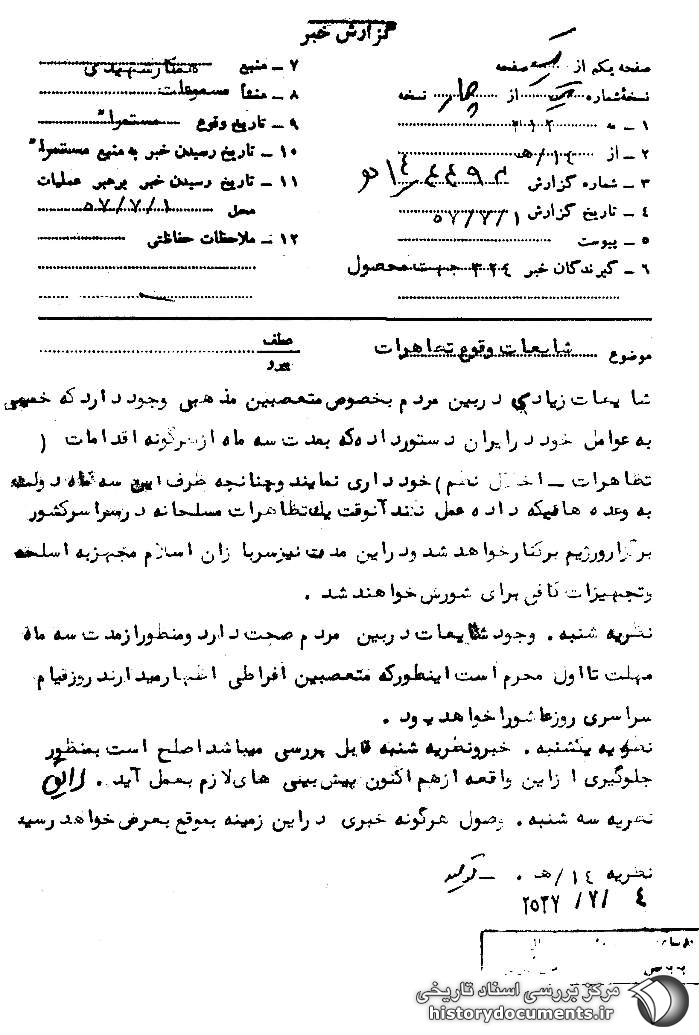 گزارش خبر
صفحه یکم از یک صفحه
نسخهٔ شماره یک از چهار نسخه
۱ ـ به ۳۱۲
۲ ـ از ۱٤/هـ
۳ ـ شماره گزارش
٤ ـ تاریخ گزارش ۵۷/۷/۱
۵ ـ پیوست
٦ ـ گیرندگان خبر ۳۲٤ جهت محصول
۷ ـ منبع
۸ ـ منشأ مسموعات
۹ ـ تاریخ وقوع مستمراً
۱۰ ـ تاریخ رسیدن خبر به منبع مستمراً
۱۱ ـ تاریخ رسیدن خبر برهبر عملیات
محل ۵۷/۷/۱
۱۲ ـ ملاحظات حفاظتی
موضوع شایعات وقوع تظاهرات
عطف
پیرو
شایعات زیادی دربین مردم بخصوص متعصبین مذهبی وجود دارد که خمینی
به عوامل خود در ایران دستور داده که بمدت سه ماه از هرگونه اقدامات (
تظاهرات ـ اخلال نظم) خود داری نمایند وچنانچه ظرف این سه ماه دولت
به وعده هائیکه داده عمل نکند آنوقت یک تظاهرات مسلحانه درسراسرکشور
برگزار ورژیم برکنار خواهد شد ودر این مدت نیز سربازان اسلام مجهز به اسلحه
وتجهیزات کافی برای شورش خواهند شد .
نظریه شنبه . وجود شایعات دربین مردم صحت دارد ومنظور از مدت سه ماه
مهلت تا اول محرم است اینطورکه متعصبین افراطی اظهار میدارند روز قیام
سراسری روز عاشورا خواهد بود .
نظریه یکشنبه . خبر ونظریه شنبه قابل بررسی میباشد اصلح است بمنظور
جلوگیری از این واقعه از هم اکنون پیش بینی های لازم بعمل آید .
نظریه سه شنبه . وصول هرگونه خبری در این زمینه بموقع بعرض خواهد رسید
نظریه ۱٤/هـ .
٤ /۷/ ۲۵۳۷
مرکز بررسی اسناد تاریخی
historydocuments.ir